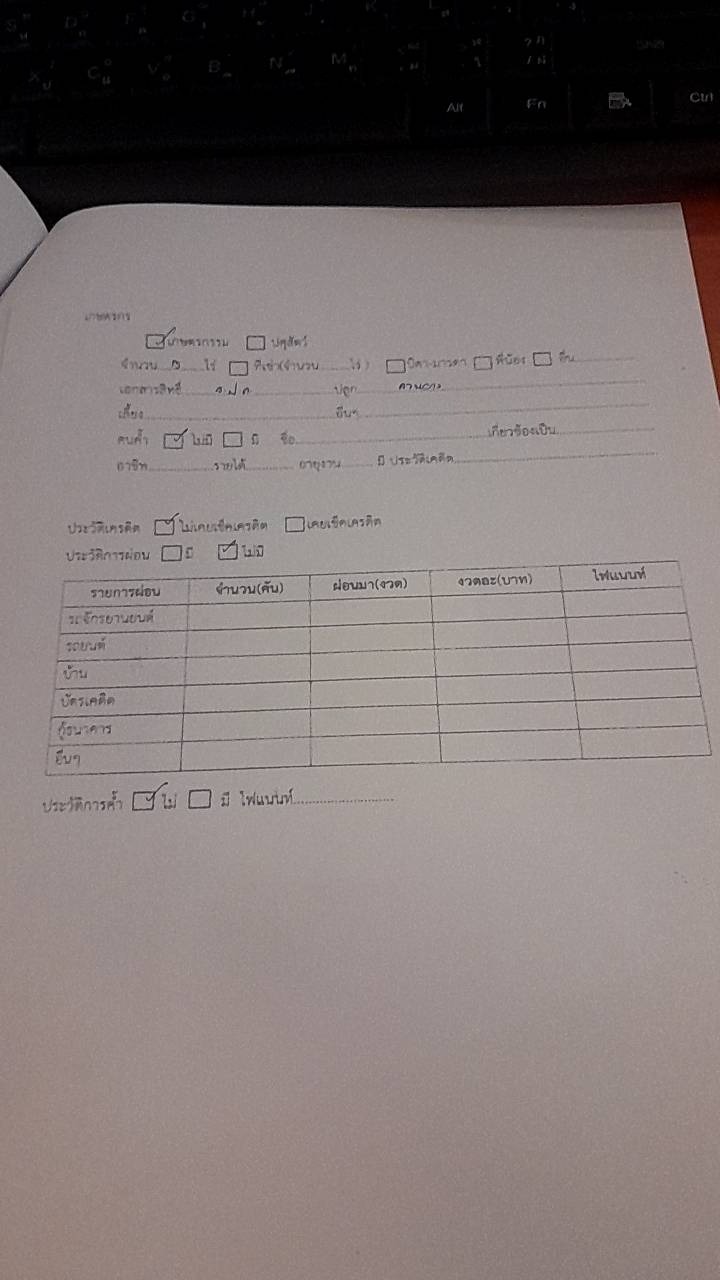 Alt Fn Ctrl
เกษตรกร
เกษตรกรรม ปศุสัตว์
จำนวน......ไร่ ที่เช่า(จำนวน........ไร่ ) บิดา-มารดา พี่น้อง อื่น
เอกสารสิทธิ์ ส.ป.ก ปลูก
เลี้ยง อื่นๆ
คนค้ำ ไม่มี มี ชื่อ เกี่ยวข้องเป็น
อาชีพ รายได้ อายุงาน มี ประวัติเคดิต
ประวัติเครดิต ไม่เคยเช็คเครดิต เคยเช็คเครดิต
ประวัติการผ่อน มี ไม่มี
รายการผ่อน จำนวน(คัน) ผ่อนมา(งวด) งวดละ(บาท) ไฟแนนท์
รถจักรยานยนต์
รถยนต์
บ้าน
บัตรเคดิต
กู้ธนาคาร
อื่นๆ
ประวัติการค้ำ ไม่ มี ไฟแนนท์